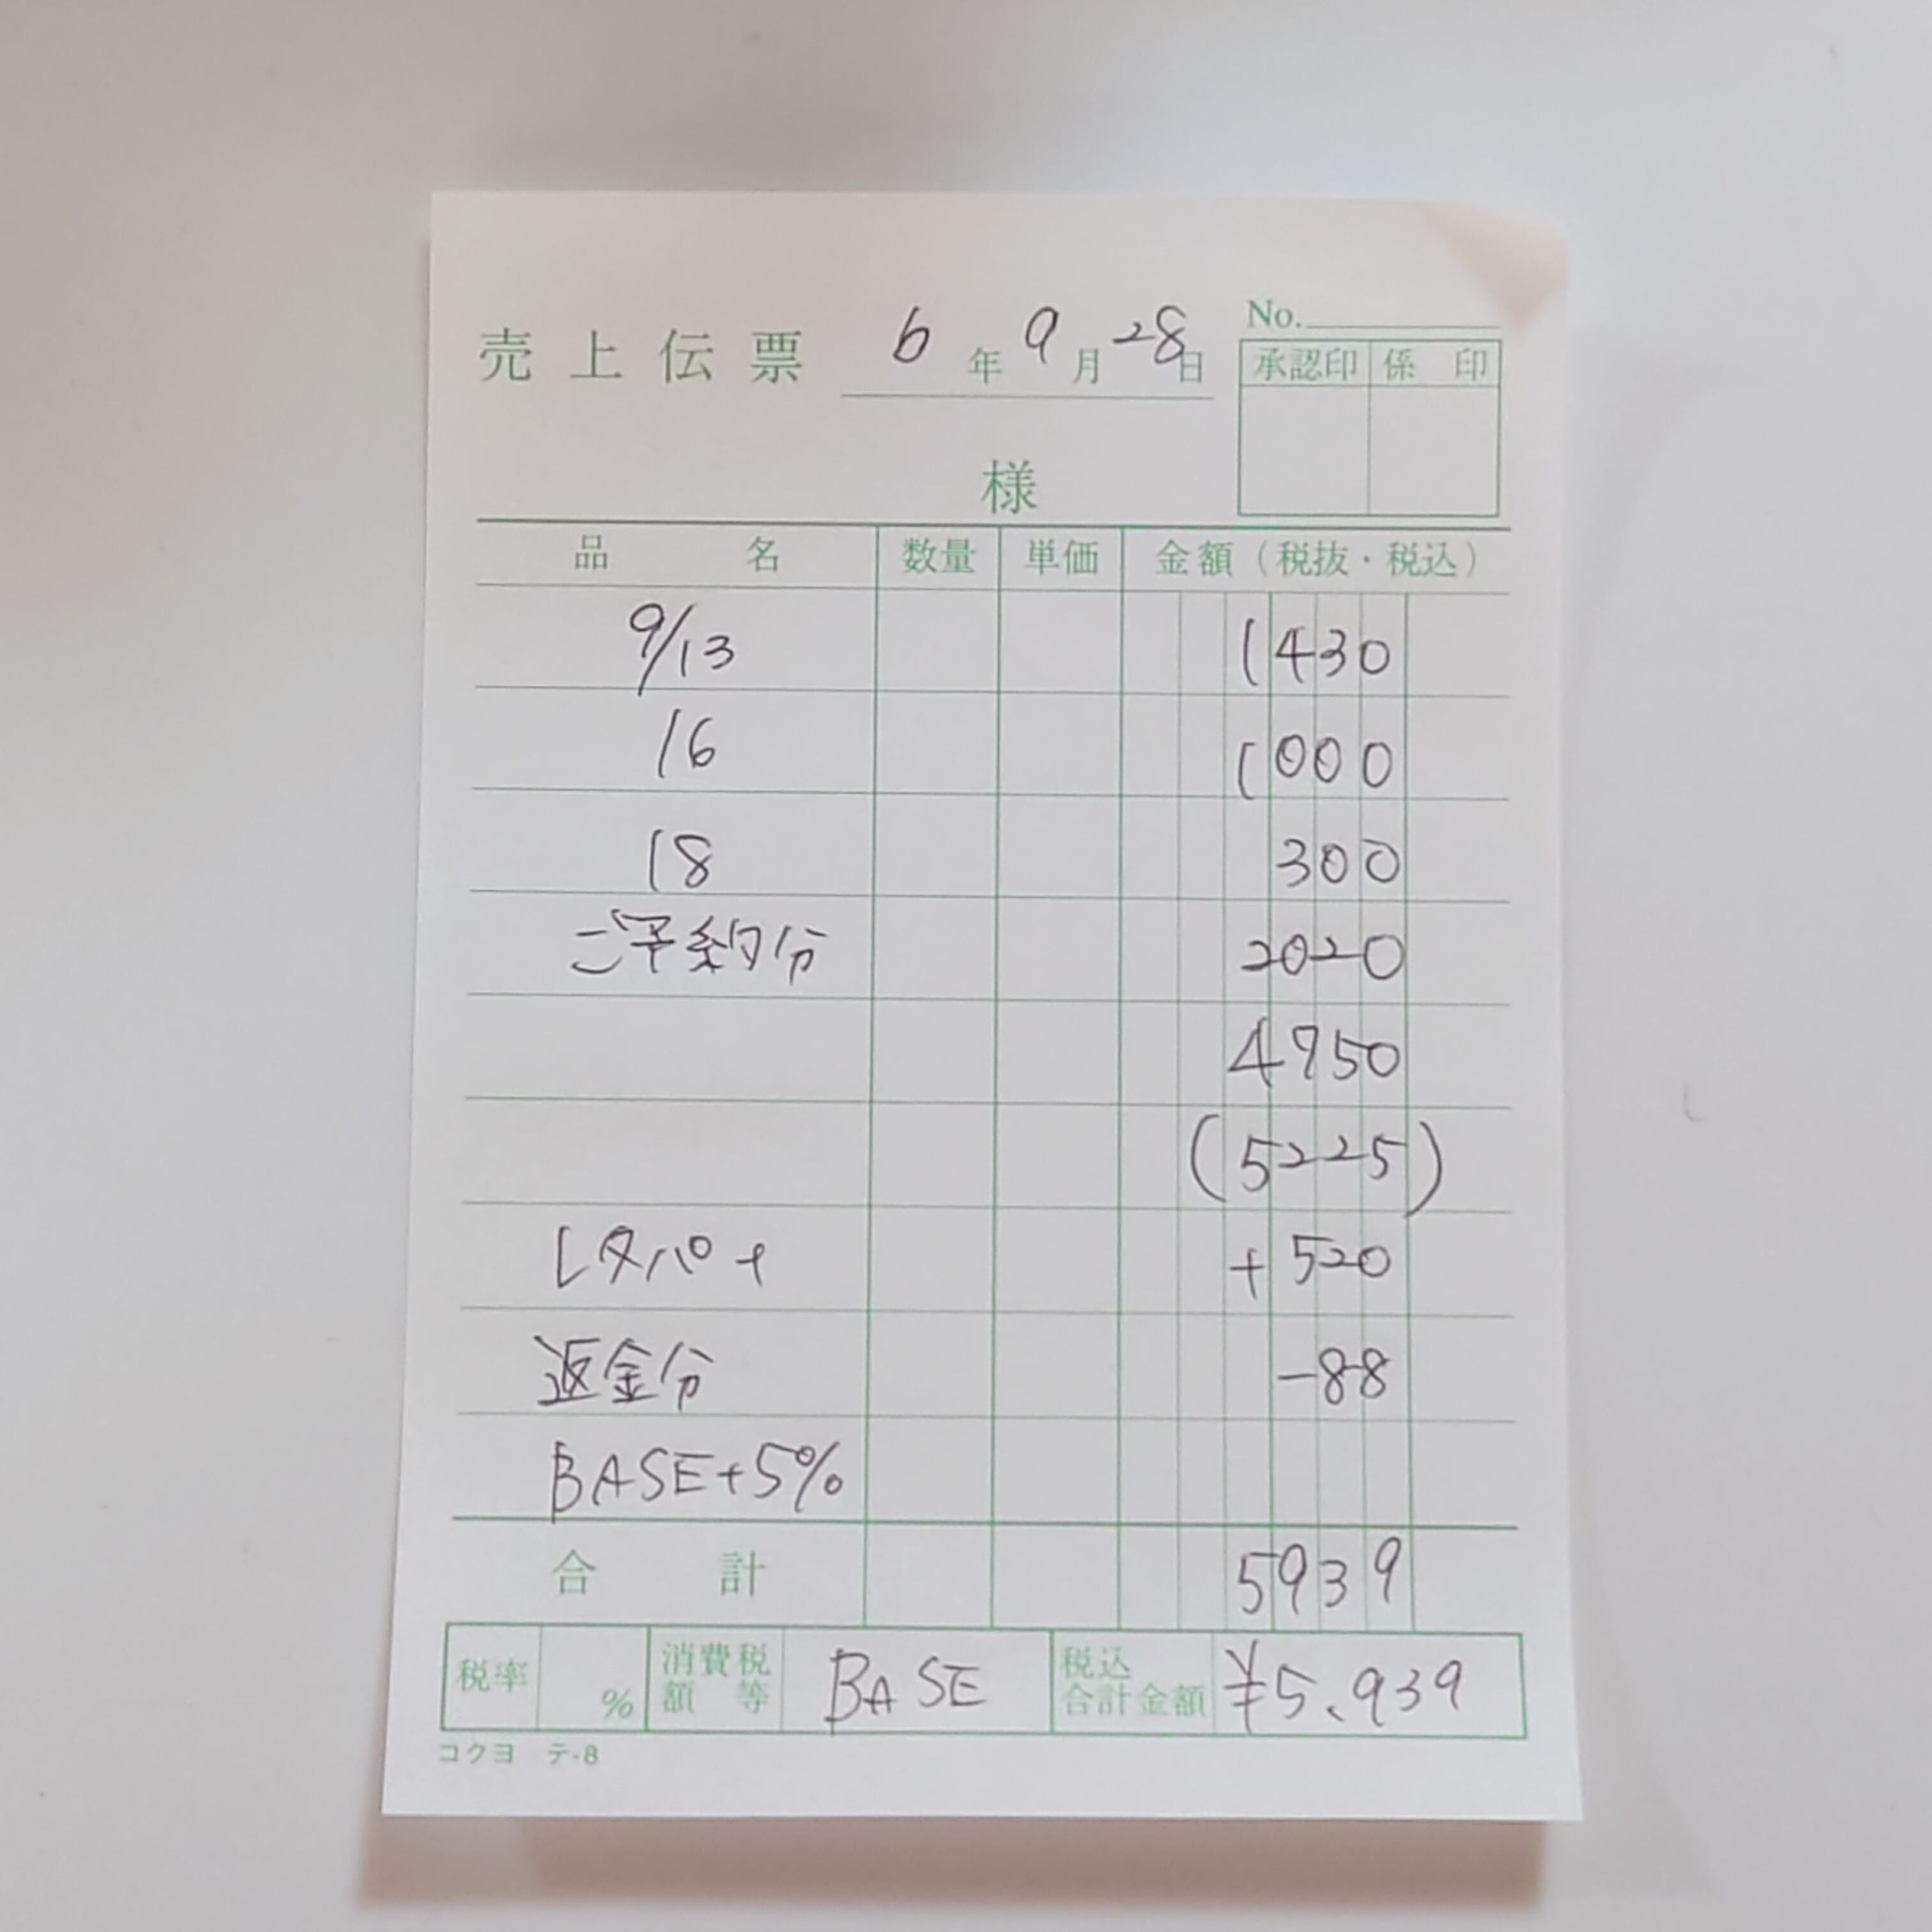 No.
売上伝票 6年9月28日
承認印 係印
様
品名 数量 単価 金額(税抜・税込)
9/13 1430
16 1000
18 300
ご予約分 2020
4750
(5225)
レタパ+ +520
返金分 -88
BASE+5%
合計 5939
税率 % 消費税額等 BASE 税込合計金額 ¥5.939
コクヨ テ-8